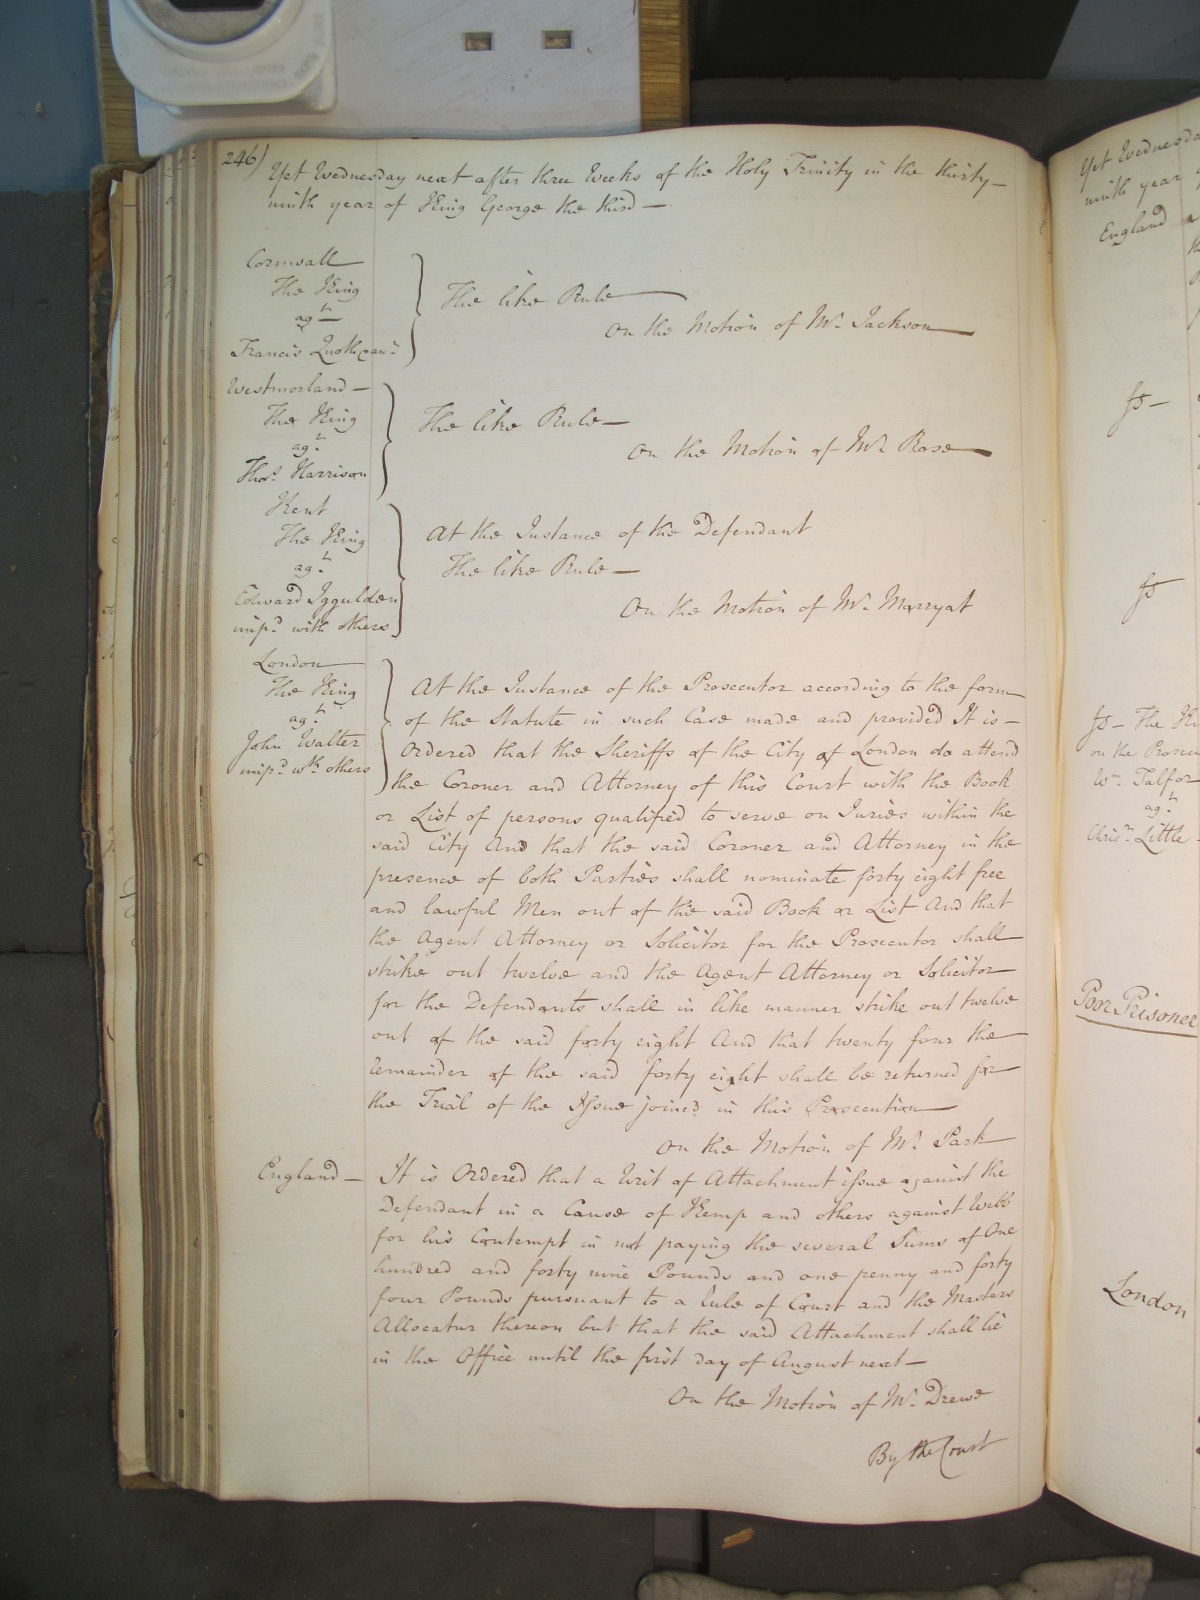 246)
Yet Wednesday next after three Weeks of the Holy Trinity in the thirty-
ninth year of King George the third —
Cornwall
The King
agt
Francis
The like Rule
On the Motion of Mr. Jackson
Westmorland —
The King
agt
Thos. Harrison
The like Rule —
On the Motion of Mr. Rose
Kent
The King
agt
Edward Iggulden
impd. with others
At the Instance of the Defendant
The like Rule —
On the Motion of Mr. Marryat
London
The King
agt
John Walter
impd. wth. others
At the Instance of the Prosecutor according to the form
of the Statute in such Case made and provided It is —
Ordered that the Sheriffs of the City of London do attend
the Coroner and Attorney of this Court with the Book
or List of persons qualified to serve on Juries within the
said City And that the said Coroner and Attorney in the
presence of both Parties shall nominate forty eight free
and lawful Men out of the said Book or List And that
the Agent Attorney or Solicitor for the Prosecutor shall
strike out twelve and the Agent Attorney or Solicitor
for the Defendants shall in like manner strike out twelve
out of the said forty eight And that twenty four the
remainder of the said forty eight shall be returned for
the Trial of the Issue joined in this Prosecution
On the Motion of Mr. Park
England —
It is Ordered that a Writ of Attachment issue against the
Defendant in a Cause of Kemp and others against Webb
for his Contempt in not paying the several Sums of One
hundred and forty nine Pounds and one penny and forty
four Pounds pursuant to a Rule of Court and the Masters
Allocatur thereon but that the said Attachment shall lie
in the Office until the first day of August next —
On the Motion of Mr. Drewe
By the Court
Yet Wednesda
ninth year
England
fs —
fs
fs — The Ki
on the Prosecu
Wm. Talfor
agt
Chrisr. Little
Poor Prisoner
London